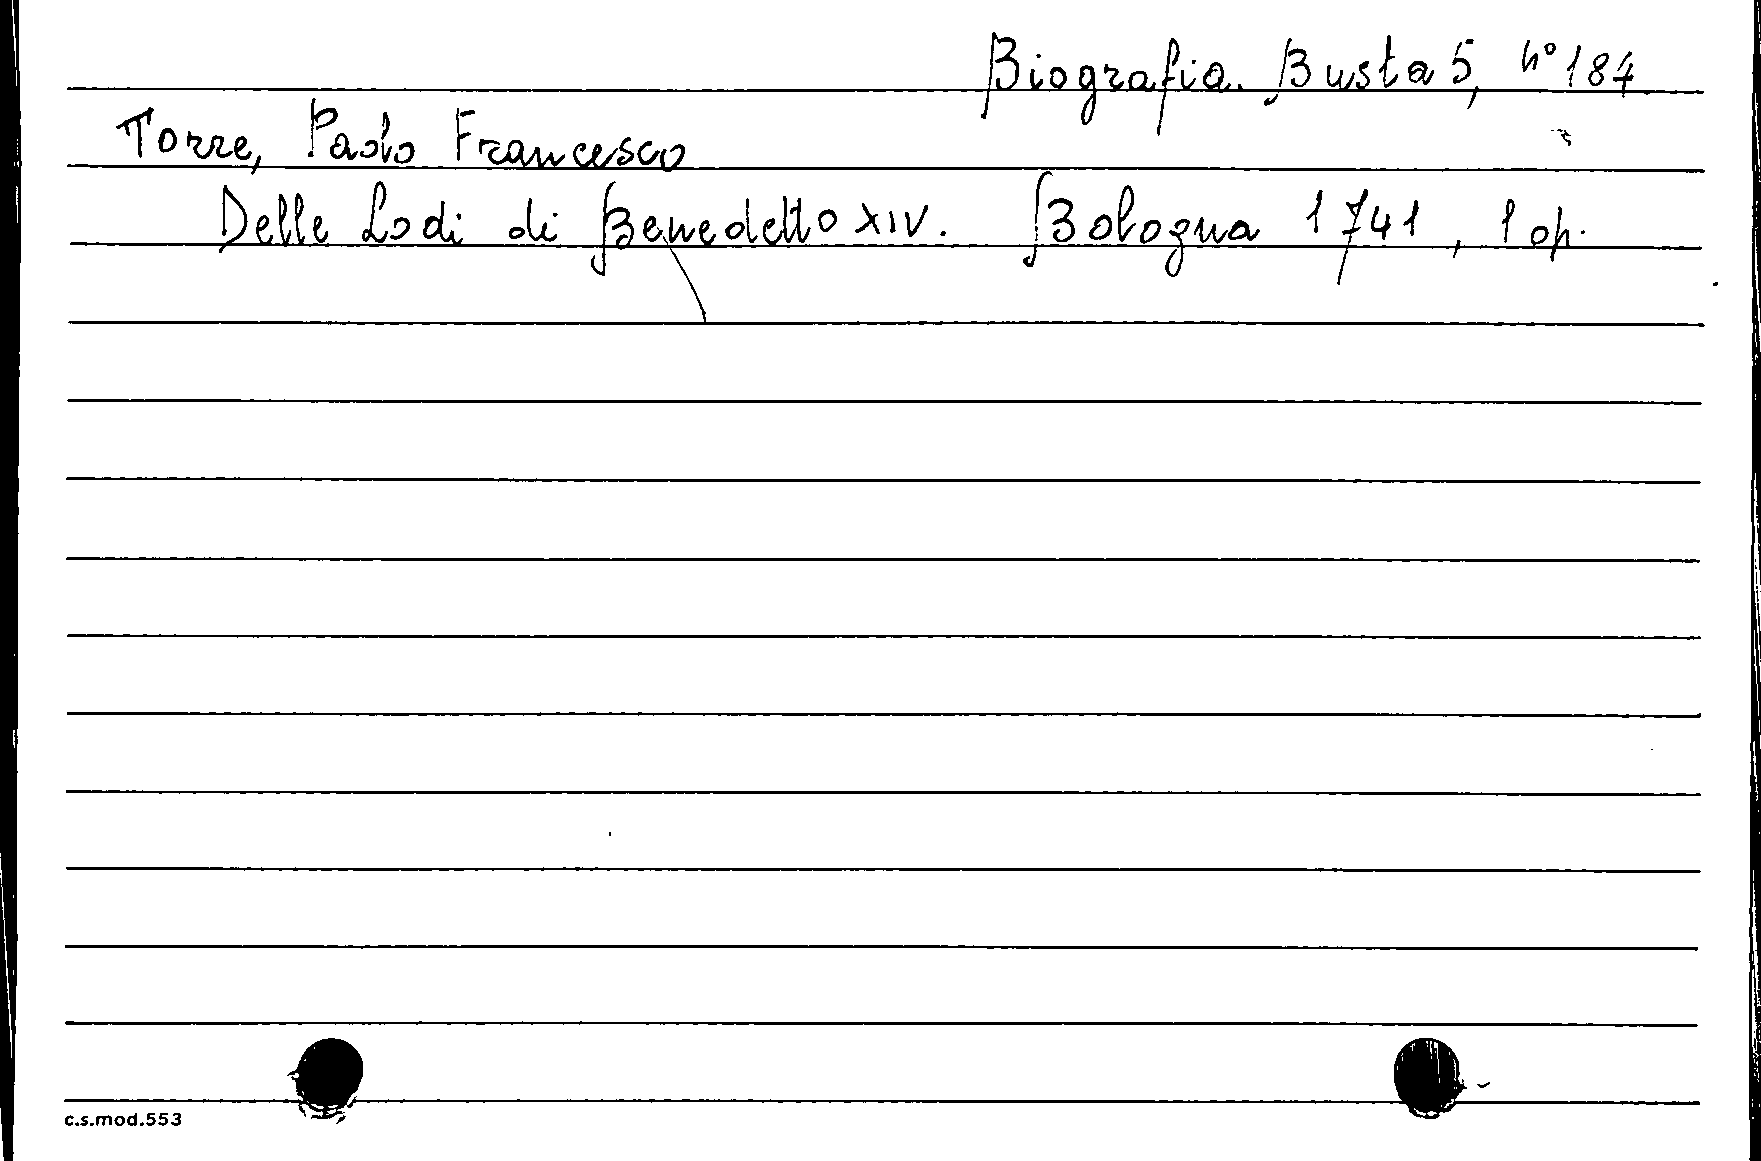 Biografia. Busta 5, n° 184
Torre, Paolo Francesco
Delle Lodi di Benedetto XIV. Bologna 1741, 1 op.
c.s.mod.553